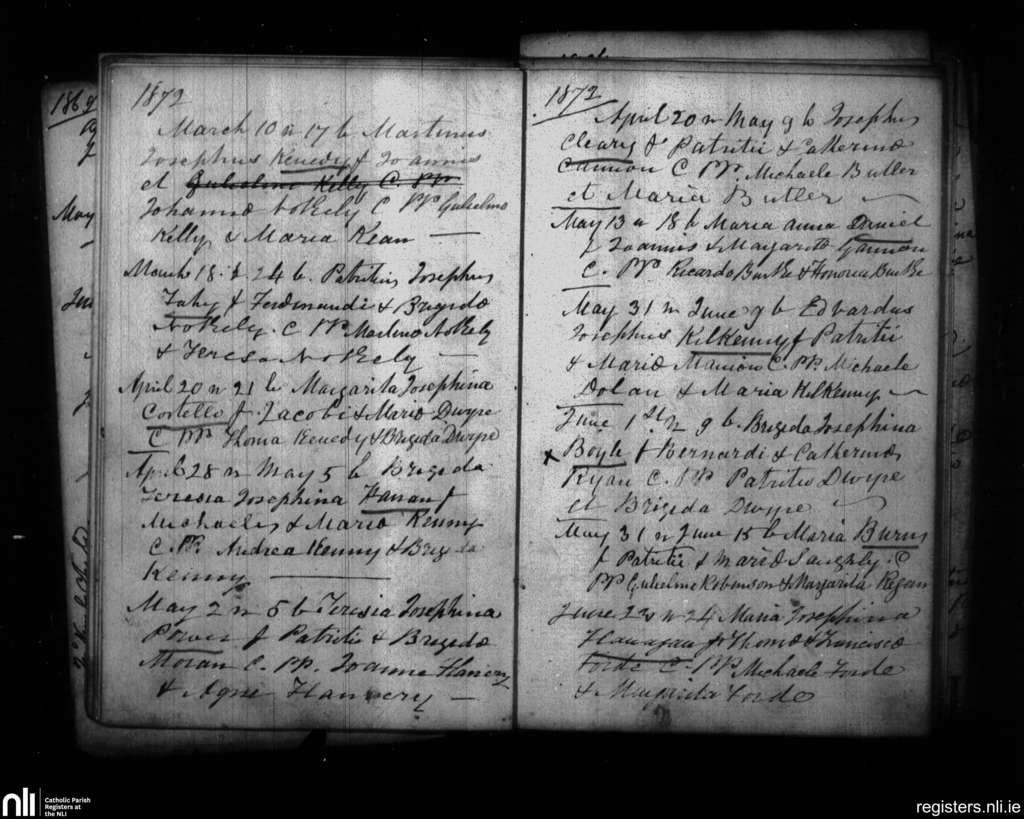 1869
May
1872
March 10 n 17 b Martinus
Josephus Kenedy f Joannis
et Gulielmo Kelly C. PP
Johanna C PP Gulielmo
Kelly & Maria Kean
March 18 n 24 b. Patritius Josephus
Fahy f Ferdinandi & Brigida
Nokely. C PP Martino Nokely
& Teresa Nokely
April 20 n 21 b Margarita Josephina
Costello f. Jacobi & Maria Dwyre
C PP Thoma Kenedy & Brigida Dwyre
April 28 n May 5 b Brigida
Teresia Josephina Hanan f
Michaelis & Maria Kenny
C. PP. Andrea Kenny & Brigida
Kenny
May 2 n 5 b Teresia Josephina
Power f Patritii & Brigida
Moran C. PP. Joanne Flannery
& Agnes Flannery
1872
April 20 n May 9 b Josephus
Cleary f Patritii & Catherina
Cannon C PP. Michaele Butler
et Maria Butler
May 13 n 18 b Maria anna Daniel
f Joannis & Margarita Gannon
C. PP Ricardo Burke & Honoria Burke
May 31 n June 9 b Edvardus
Josephus Kilkenny f Patritii
& Maria Manion C. PP. Michaele
Dolan & Maria Kilkenny
June 1st n 9 b. Brigida Josephina
x Boyle f Bernardi & Catherina
Ryan C. PP Patritio Dwyre
et Brigida Dwyre
May 31 n June 15 b Maria Burns
f Patritii & Maria C
PP Gulielmo Robinson & Margarita Regan
June 22 n 24 Maria Josephina
Flanagan f Thoma & Francisca
Forde C. PP Michaele Forde
& Margarita Forde
nli
Catholic Parish
Registers at
the NLI
registers.nli.ie